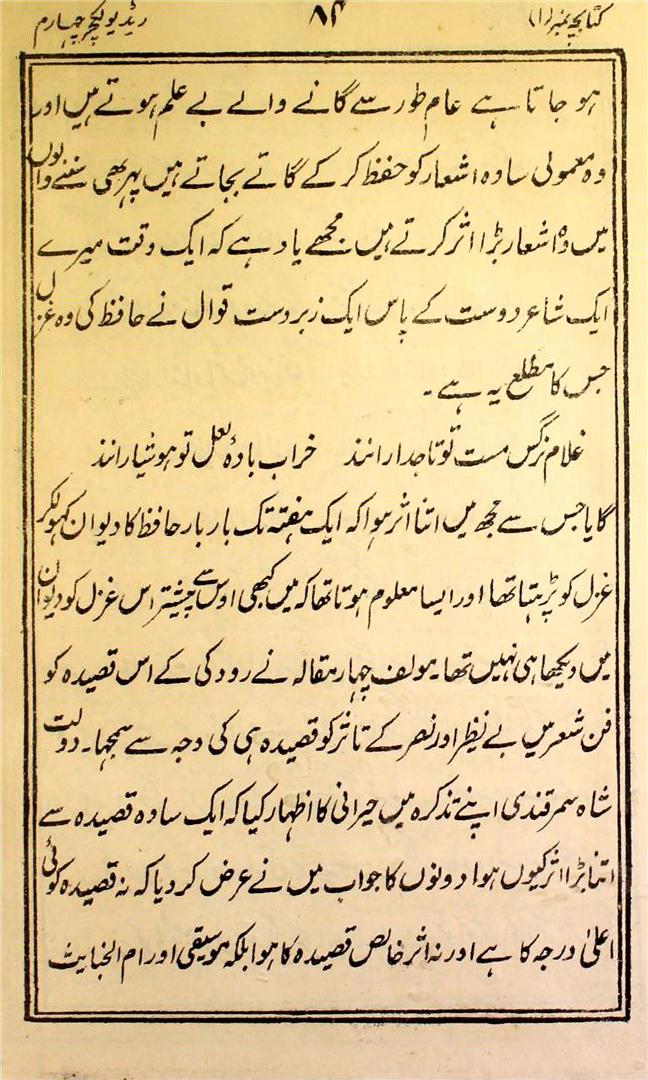 کتابچہ نمبر (۱) ۸۴ ریڈیو لکچر چہارم
ہو جاتا ہے عام طور سے گانے والے بے علم ہوتے ہیں اور
وہ معمولی سادہ اشعار کو حفظ کر کے گاتے بجاتے ہیں پہر بھی سننے والوں
میں وہ اشعار بڑا اثر کرتے ہیں مجھے یاد ہے کہ ایک وقت میرے
ایک شاعر دوست کے پاس ایک زبردست قوال نے حافظ کی وہ غزل
جس کا مطلع یہ ہے ۔
غلام نرگس مست تو تاجدارانند خراب بادۂ لعل تو ہوشیارانند
گایا جس سے مجھ میں اتنا اثر ہوا کہ ایک ہفتہ تک بار بار حافظ کا دیوان کہولکر
غزل کو پڑہتا تھا اور ایسا معلوم ہوتا تھا کہ میں کبھی اوس سے پیشتر اس غزل کو دیوان
میں دیکھا ہی نہیں تھا۔ مولف چہار مقالہ نے رودکی کے اس قصیدہ کو
فن شعر میں بے نظیر اور نصر کے تاثر کو قصیدہ ہی کی وجہ سے سمجہا۔ دولت
شاہ سمرقندی اپنے تذکرہ میں حیرانی کا اظہار کیا کہ ایک سادہ قصیدہ سے
اتنا بڑا اثر کیوں ہوا دونوں کا جواب میں نے عرض کر دیا کہ نہ قصیدہ کوئی
اعلیٰ درجہ کا ہے اور نہ اثر خالص قصیدہ کا ہوا بلکہ موسیقی اور ام الخبایث